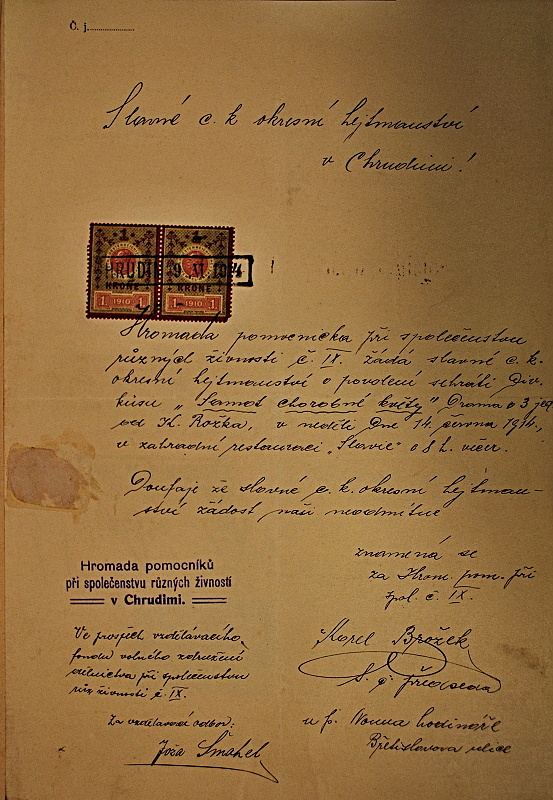 Č. j.
Slavné c. k. okresní hejtmanství
v Chrudimi!
1 1
CHRUDIM 9 VI 1914
KRONE KRONE
1 1910 1 1 1910 1
Hromada pomocnická při společenstvu
různých živností č. IX. žádá slavné c. k.
okresní hejtmanství o povolení sehráti Div.
kusu „Samot chorobné květy" Drama o 3 jed
od K. Rožka, v neděli Dne 14. června 1914.,
v zahradní restauraci „Slavie" o 8 h. večer.
Doufaje že slavné c. k. okresní hejtman-
ství žádost naši neodmítne
znamená se
za Hrom. pom. při
spol. č. IX.
Hromada pomocníků
při společenstvu různých živností
v Chrudimi.
Karel Brožek
předseda
Ve prospěch vzdělávacího
fondu volného sdružení
dělnictva při společenstvu
růz živností č. IX.
u p. hodináře
Břetislavova ulice
Za vzdělavací odbor:
Joža Šmahel